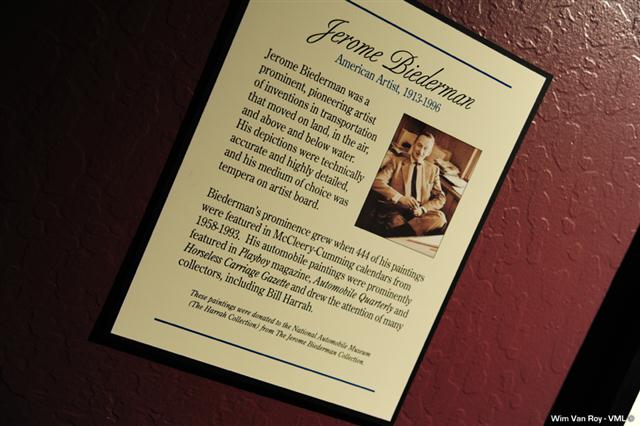 Jerome Biederman
American Artist, 1913-1996
Jerome Biederman was a
prominent, pioneering artist
of inventions in transportation
that moved on land, in the air,
and above and below water.
His depictions were technically
accurate and highly detailed,
and his medium of choice was
tempera on artist board.
Biederman's prominence grew when 444 of his paintings
were featured in McCleery-Cumming calendars from
1958-1993. His automobile paintings were prominently
featured in Playboy magazine, Automobile Quarterly and
Horseless Carriage Gazette and drew the attention of many
collectors, including Bill Harrah.
These paintings were donated to the National Automobile Museum
(The Harrah Collection) from The Jerome Biederman Collection.
Wim Van Roy - VML